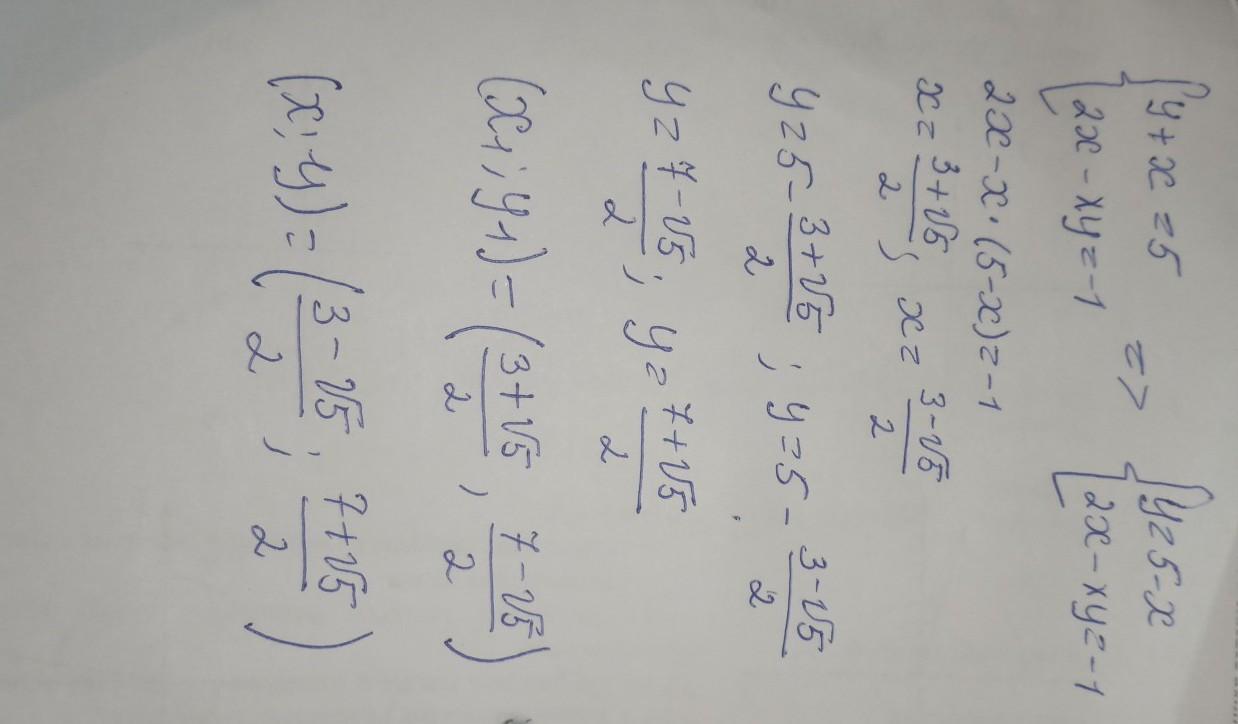 { y + x = 5 => { y = 5 - x
{ 2x - xy = -1 { 2x - xy = -1
2x - x · (5 - x) = -1
x = (3 + √5)/2 ; x = (3 - √5)/2
y = 5 - (3 + √5)/2 ; y = 5 - (3 - √5)/2
y = (7 - √5)/2 ; y = (7 + √5)/2
(x1 ; y1) = ((3 + √5)/2 , (7 - √5)/2)
(x ; y) = ((3 - √5)/2 ; (7 + √5)/2)